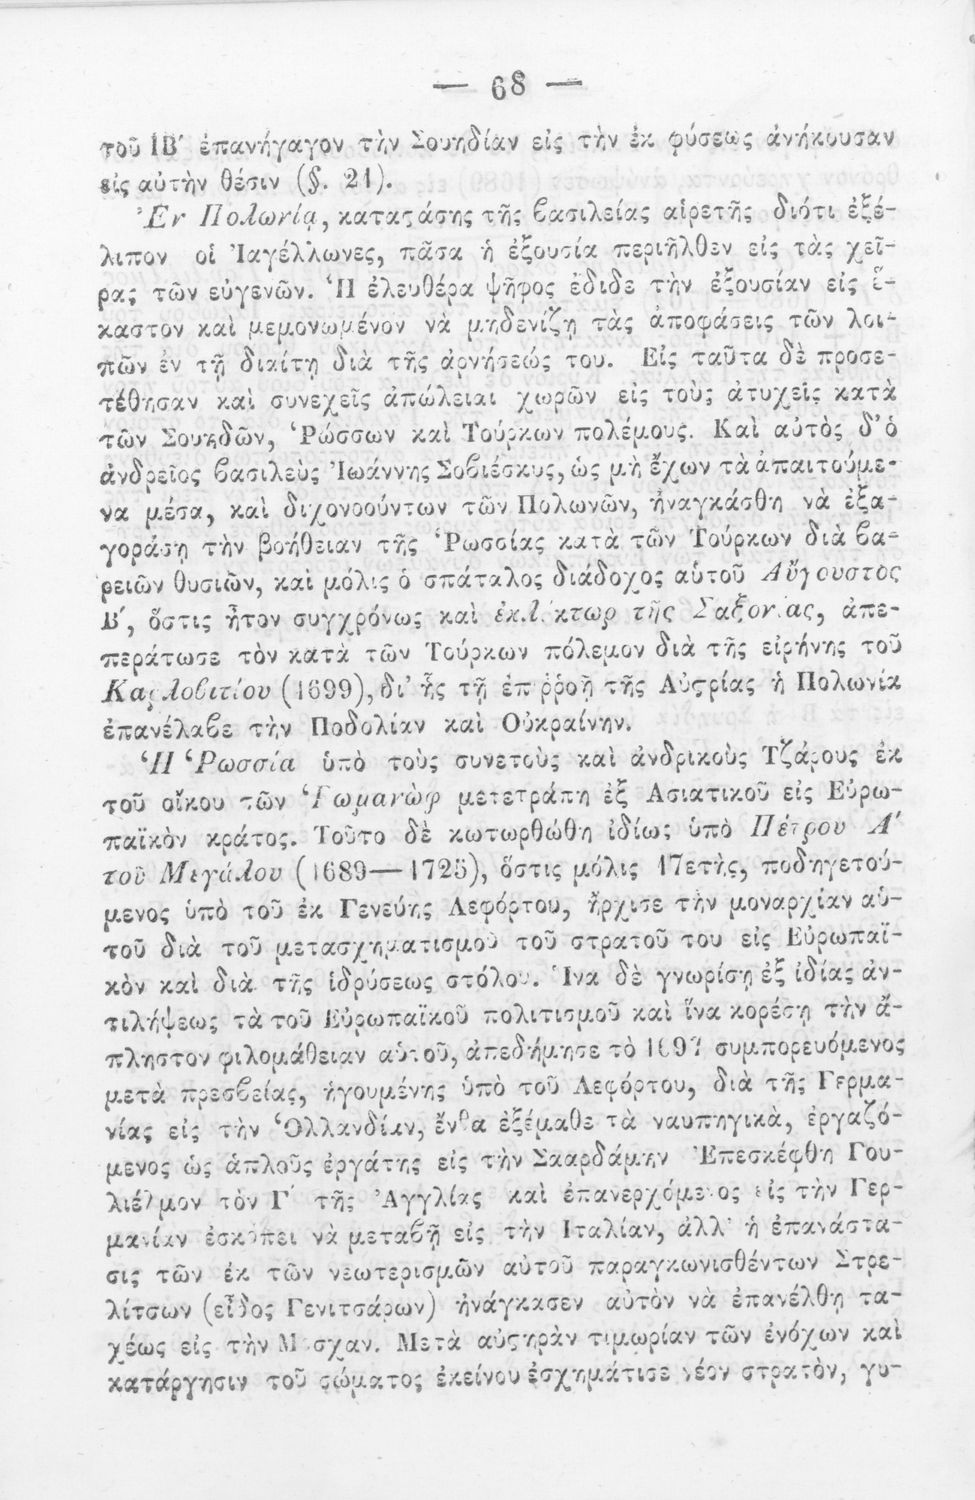 — 68 —
τοῦ ΙΒ′ ἐπανήγαγον τὴν Σουηδίαν εἰς τὴν ἐκ φύσεως ἀνήκουσαν
εἰς αὐτὴν θέσιν (§. 21).
Ἐν Πολωνίᾳ, καταϛάσης τῆς βασιλείας αἱρετῆς διότι ἐξέ-
λιπον οἱ Ἰαγέλλωνες, πᾶσα ἡ ἐξουσία περιῆλθεν εἰς τὰς χεῖ-
ρας τῶν εὐγενῶν. Ἡ ἐλευθέρα ψῆφος ἔδιδε τὴν ἐξουσίαν εἰς ἕ-
καστον καὶ μεμονωμένον νὰ μηδενίζῃ τὰς ἀποφάσεις τῶν λοι-
πῶν ἐν τῇ διαίτῃ διὰ τῆς ἀρνήσεώς του. Εἰς ταῦτα δὲ προσε-
τέθησαν καὶ συνεχεῖς ἀπώλειαι χωρῶν εἰς τοὺς ἀτυχεῖς κατὰ
τῶν Σουηδῶν, Ῥώσσων καὶ Τούρκων πολέμους. Καὶ αὐτὸς δ' ὁ
ἀνδρεῖος βασιλεὺς Ἰωάννης Σοβιέσκυς, ὡς μὴ ἔχων τὰ ἀπαιτούμε-
να μέσα, καὶ διχονοούντων τῶν Πολωνῶν, ἠναγκάσθη νὰ ἐξα-
γοράσῃ τὴν βοήθειαν τῆς Ῥωσσίας κατὰ τῶν Τούρκων διὰ βα-
ρειῶν θυσιῶν, καὶ μόλις ὁ σπάταλος διάδοχος αὐτοῦ Αὔγουστος
Β′, ὅστις ἦτον συγχρόνως καὶ ἐκλέκτωρ τῆς Σαξονίας, ἀπε-
περάτωσε τὸν κατὰ τῶν Τούρκων πόλεμον διὰ τῆς εἰρήνης τοῦ
Καρλοβιτίου (1699), δι' ἧς τῇ ἐπιῤῥοῇ τῆς Αὐϛρίας ἡ Πολωνία
ἐπανέλαβε τὴν Ποδολίαν καὶ Οὐκραίνην.
Ἡ Ῥωσσία ὑπὸ τοὺς συνετοὺς καὶ ἀνδρικοὺς Τζάρους ἐκ
τοῦ οἴκου τῶν Ῥωμανὼφ μετετράπη ἐξ Ἀσιατικοῦ εἰς Εὐρω-
παϊκὸν κράτος. Τοῦτο δὲ κωτωρθώθη ἰδίως ὑπὸ Πέτρου Α′
τοῦ Μεγάλου (1689—1725), ὅστις μόλις 17ετὴς, ποδηγετού-
μενος ὑπὸ τοῦ ἐκ Γενεύης Λεφόρτου, ἤρχισε τὴν μοναρχίαν αὑ-
τοῦ διὰ τοῦ μετασχηματισμοῦ τοῦ στρατοῦ του εἰς Εὐρωπαϊ-
κὸν καὶ διὰ τῆς ἱδρύσεως στόλου. Ἵνα δὲ γνωρίσῃ ἐξ ἰδίας ἀν-
τιλήψεως τὰ τοῦ Εὐρωπαϊκοῦ πολιτισμοῦ καὶ ἵνα κορέσῃ τὴν ἄ-
πληστον φιλομάθειαν αὑτοῦ, ἀπεδήμησε τὸ 1697 συμπορευόμενος
μετὰ πρεσβείας, ἡγουμένης ὑπὸ τοῦ Λεφόρτου, διὰ τῆς Γερμα-
νίας εἰς τὴν Ὁλλανδίαν, ἔνθα ἐξέμαθε τὰ ναυπηγικὰ, ἐργαζό-
μενος ὡς ἁπλοῦς ἐργάτης εἰς τὴν Σααρδάμην Ἐπεσκέφθη Γου-
λιέλμον τὸν Γ′ τῆς Ἀγγλίας καὶ ἐπανερχόμενος εἰς τὴν Γερ-
μανίαν ἐσκόπει νὰ μεταβῇ εἰς τὴν Ιταλίαν, ἀλλ' ἡ ἐπανάστα-
σις τῶν ἐκ τῶν νεωτερισμῶν αὐτοῦ παραγκωνισθέντων Στρε-
λίτσων (εἶδος Γενιτσάρων) ἠνάγκασεν αὐτὸν νὰ ἐπανέλθῃ τα-
χέως εἰς τὴν Μόσχαν. Μετὰ αὐϛηρὰν τιμωρίαν τῶν ἐνόχων καὶ
κατάργησιν τοῦ σώματος ἐκείνου ἐσχημάτισε νέον στρατὸν, γυ-